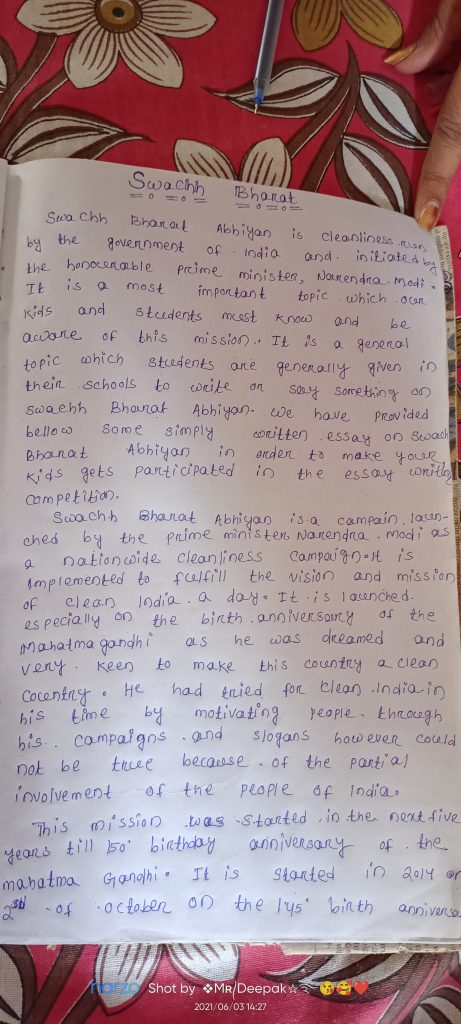 Swachh Bharat
Swachh Bharat Abhiyan is cleanliness run
by the government of India and initiated by
the honourable prime minister, Narendra Modi.
It is a most important topic which our
Kids and students must know and be
aware of this mission. It is a general
topic which students are generally given in
their schools to write or say something on
swachh Bharat Abhiyan. We have provided
bellow some simply written essay on Swach
Bharat Abhiyan in order to make your
Kids gets participated in the essay writing
competition.
Swachh Bharat Abhiyan is a campain laun-
ched by the prime minister Narendra modi as
a nationwide cleanliness campaign. It is
implemented to fulfill the vision and mission
of clean India. a day. It is launched
especially on the birth anniversary of the
Mahatma gandhi as he was dreamed and
very keen to make this country a clean
Country. He had tried for clean India in
his time by motivating people through
his campaigns and slogans however could
not be true because of the partial
involvement of the people of India.
This mission was started in the next five
years till 150° birthday anniversary of the
mahatma Gandhi. It is started in 2014 on
2 of october on the 145° birth anniversa
narzo Shot by ❖MR/Deepak☆ 😘🥰❤️
2021/06/03 14:27